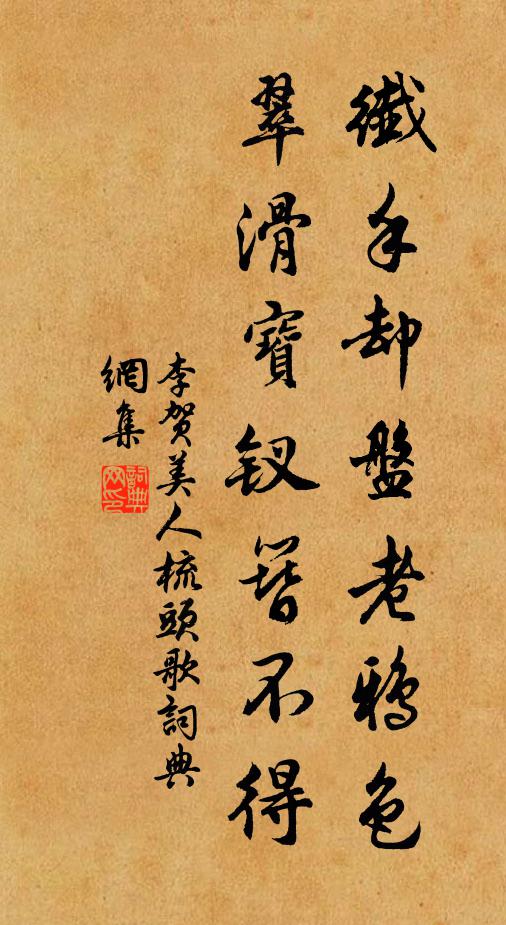 纖手却盤老鴉色
翠滑寶釵簪不得
李賀美人梳頭歌詞典
網集
詞典
网印